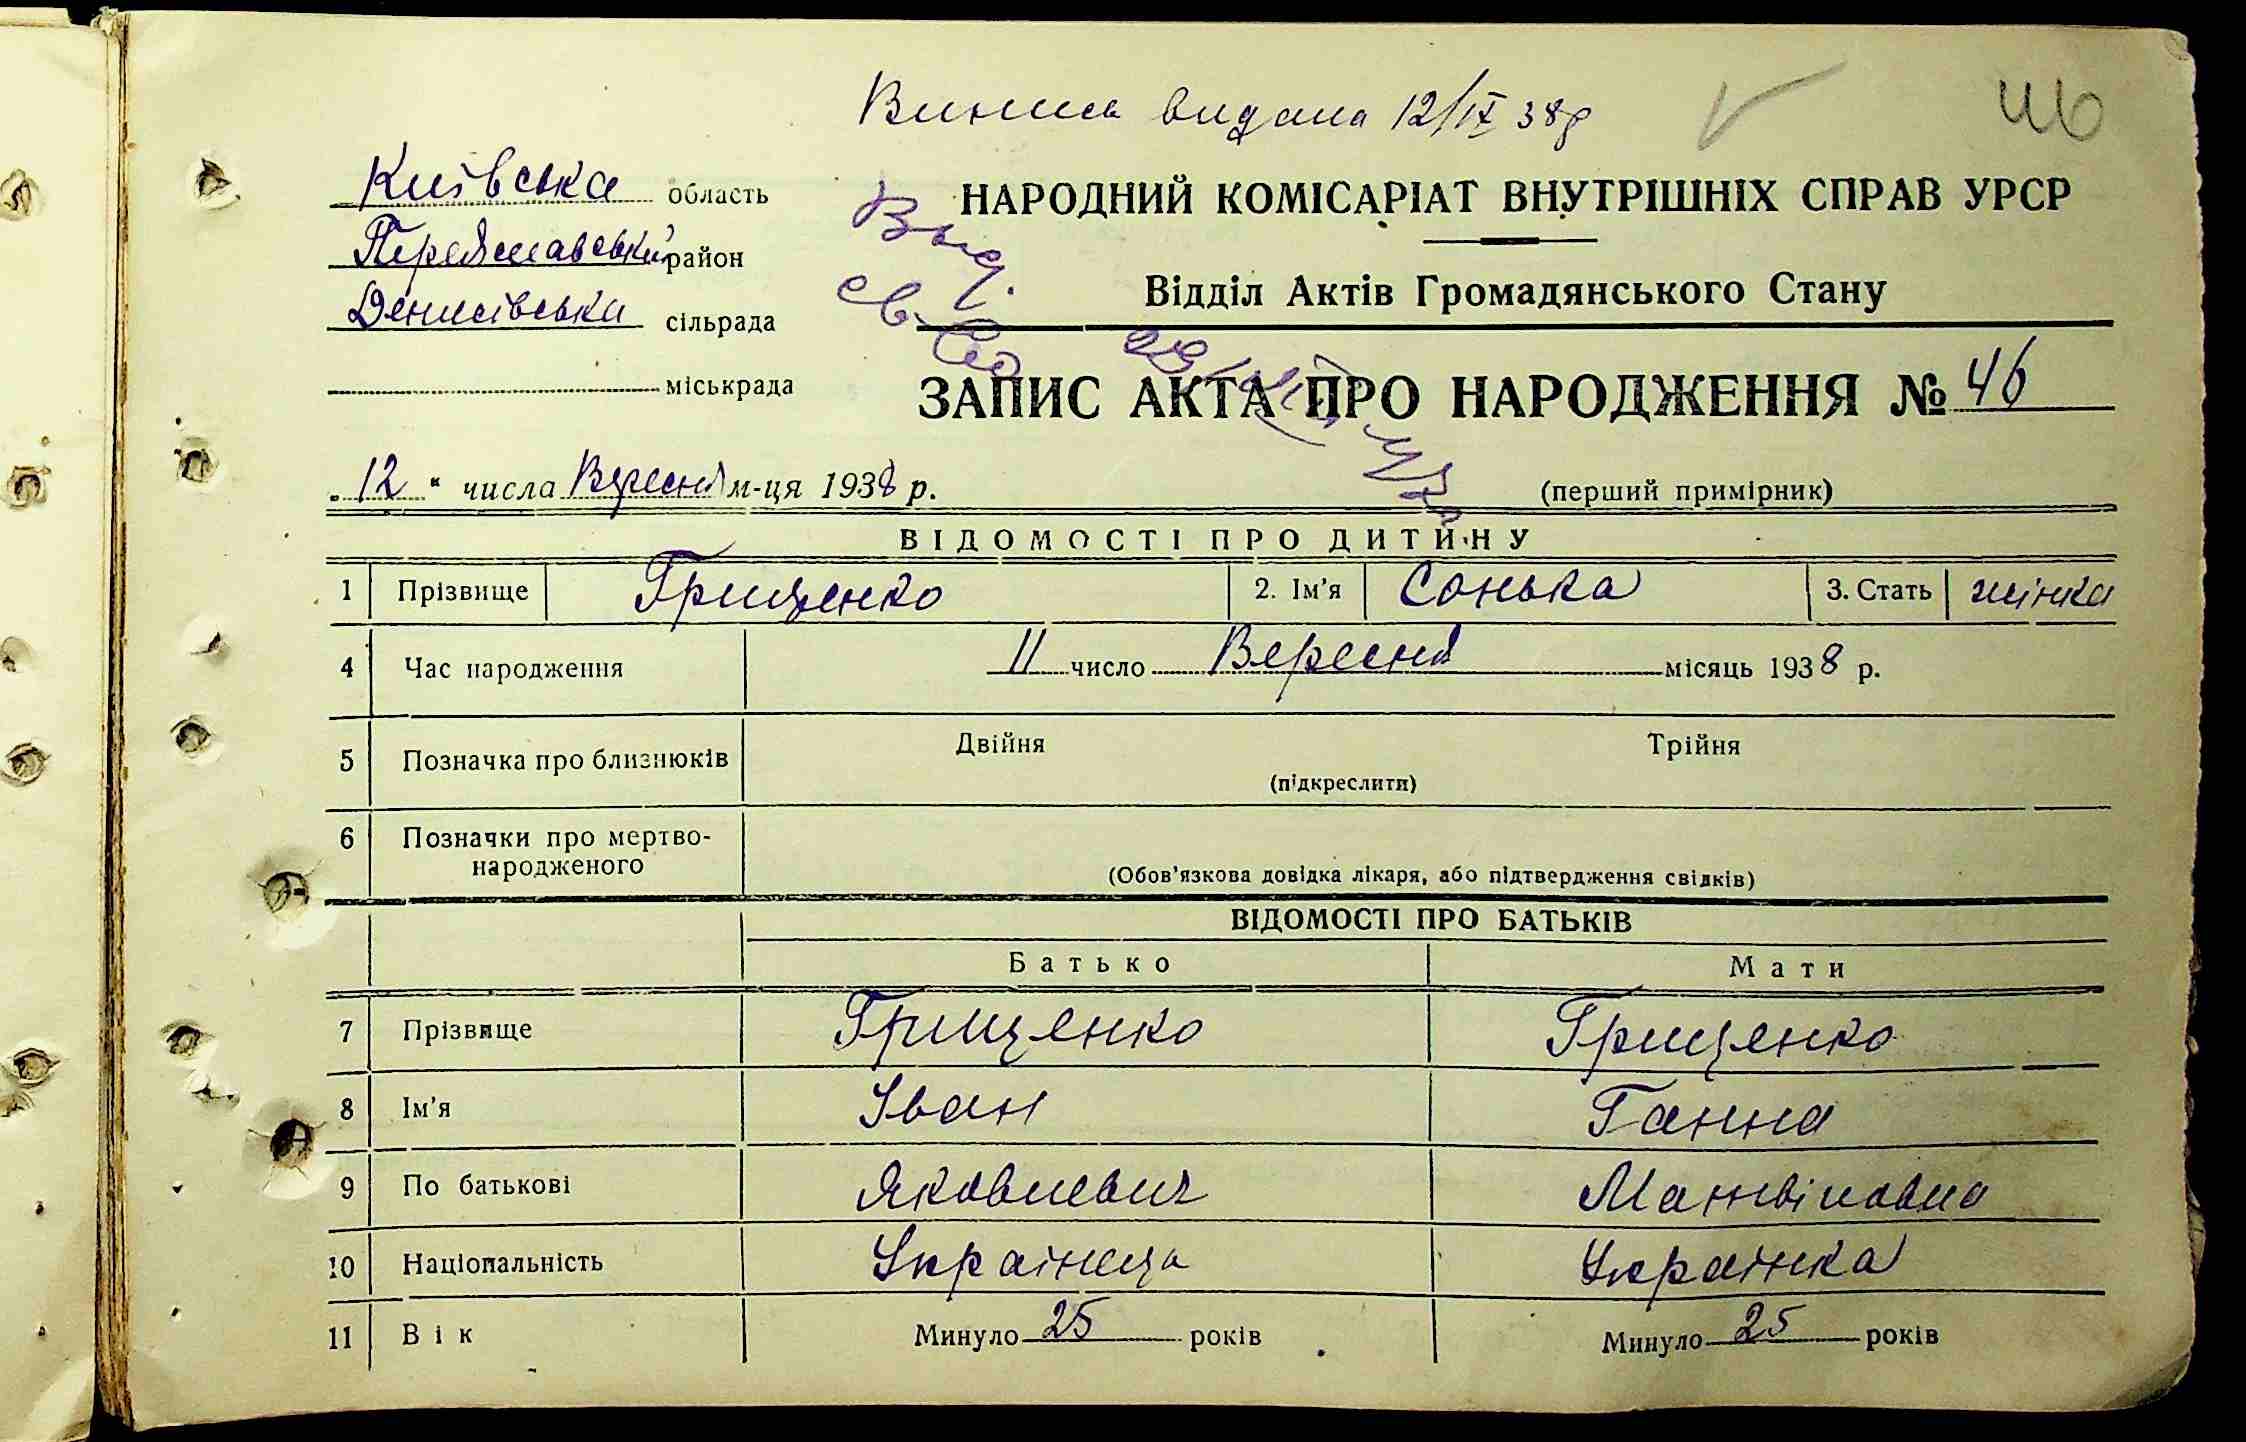 Випись видана 12/IX 38р
46
Київська область
Переяславський район
Денисівська сільрада
міськрада
НАРОДНИЙ КОМІСАРІАТ ВНУТРІШНІХ СПРАВ УРСР
Відділ Актів Громадянського Стану
Выд.
св-во
ЗАПИС АКТА ПРО НАРОДЖЕННЯ № 46
„12“ числа Вересня м-ця 1938 р.
(перший примірник)
ВІДОМОСТІ ПРО ДИТИНУ
1 Прізвище Грищенко 2. Ім'я Сонька 3. Стать жінка
4 Час народження 11 число Вересня місяць 1938 р.
5 Позначка про близнюків Двійня Трійня
(підкреслити)
6 Позначки про мертво-
народженого
(Обов'язкова довідка лікаря, або підтвердження свідків)
ВІДОМОСТІ ПРО БАТЬКІВ
Батько Мати
7 Прізвище Грищенко Грищенко
8 Ім'я Іван Ганна
9 По батькові Яковлевич Матвіповна
10 Національність Українець Українка
11 Вік Минуло 25 років Минуло 25 років